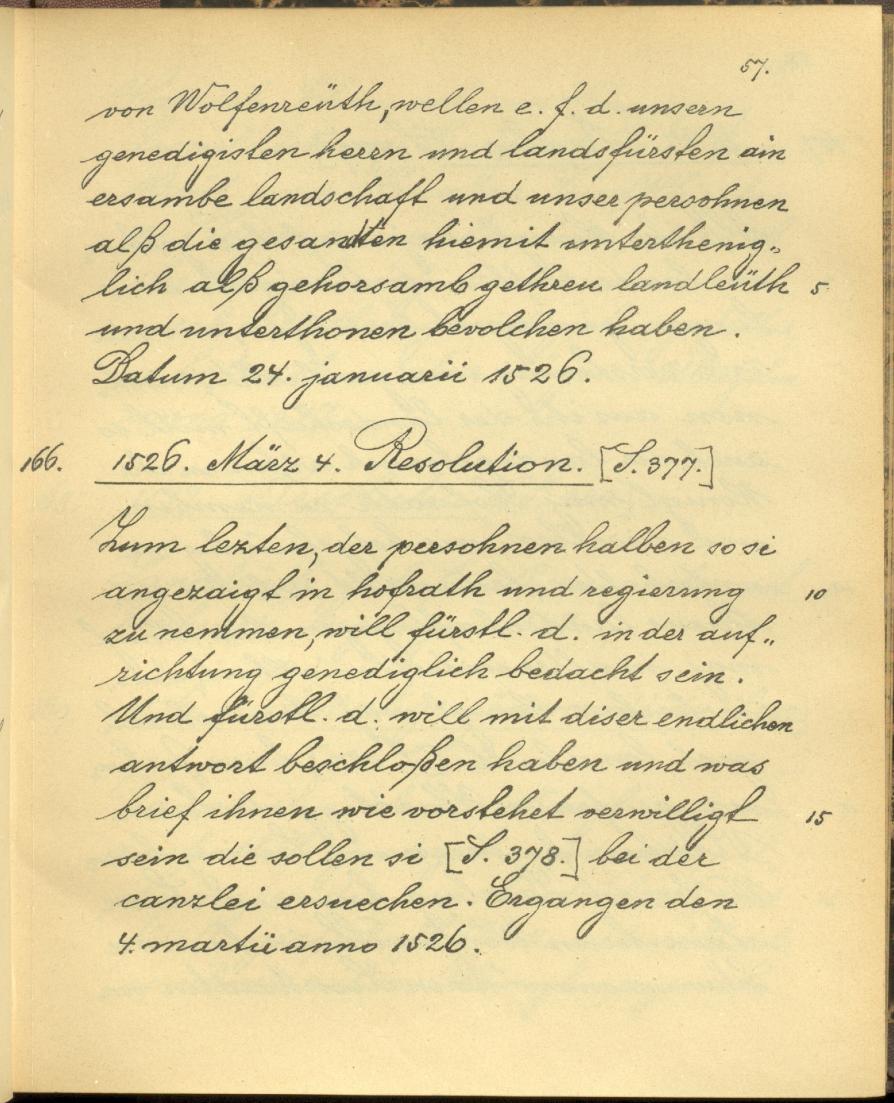 57.
von Wolfenreüth, wellen e. f. d. unsern
genedigisten herrn und landsfürsten ain
ersambe landschaft und unser persohnen
alß die gesandten hiemit unterthenig„
lich alß gehorsamb gethreu landleüth 5
und unterthonen bevolchen haben.
Datum 24. januarii 1526.
166. 1526. März 4. Resolution. [S. 377.]
Zum lezten, der persohnen halben so si
angezaigt in hofrath und regierung 10
zu nemmen, will fürstl. d. in der auf„
richtung genediglich bedacht sein.
Und fürstl. d. will mit diser endlichen
antwort beschloßen haben und was
brief ihnen wie vorstehet verwilligt 15
sein die sollen si [S. 378.] bei der
canzlei ersuechen. Ergangen den
4. martii anno 1526.